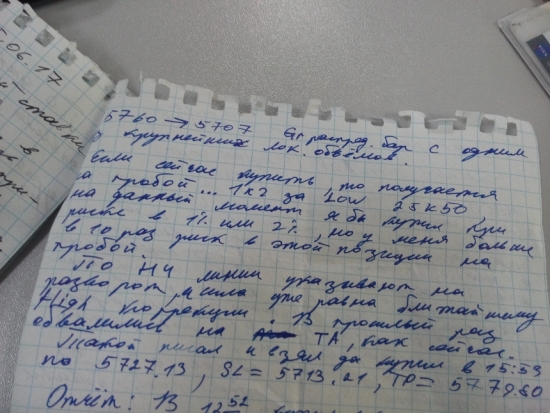 .06.17
5760 → 5707 Gr распред. бар с одним
крупнейших лок. объёмов.
Если сейчас купить, то получается
на пробой... 1 к 2 за Low 25 к 50
на данный момент я бы купил при
риске в 1% или 2%, но у меня больше
в 10 раз риск в этой позиции на
пробой
По H4 линии указывают на
разворот, и сила уже равна ближайшему
High коррекции. В прошлый раз
обвалились на ТА, как сейчас.
писал и взял да купил в 15:53
по 5727.13, SL = 5713.21, TP = 5779.80
Отчёт: В 12 52